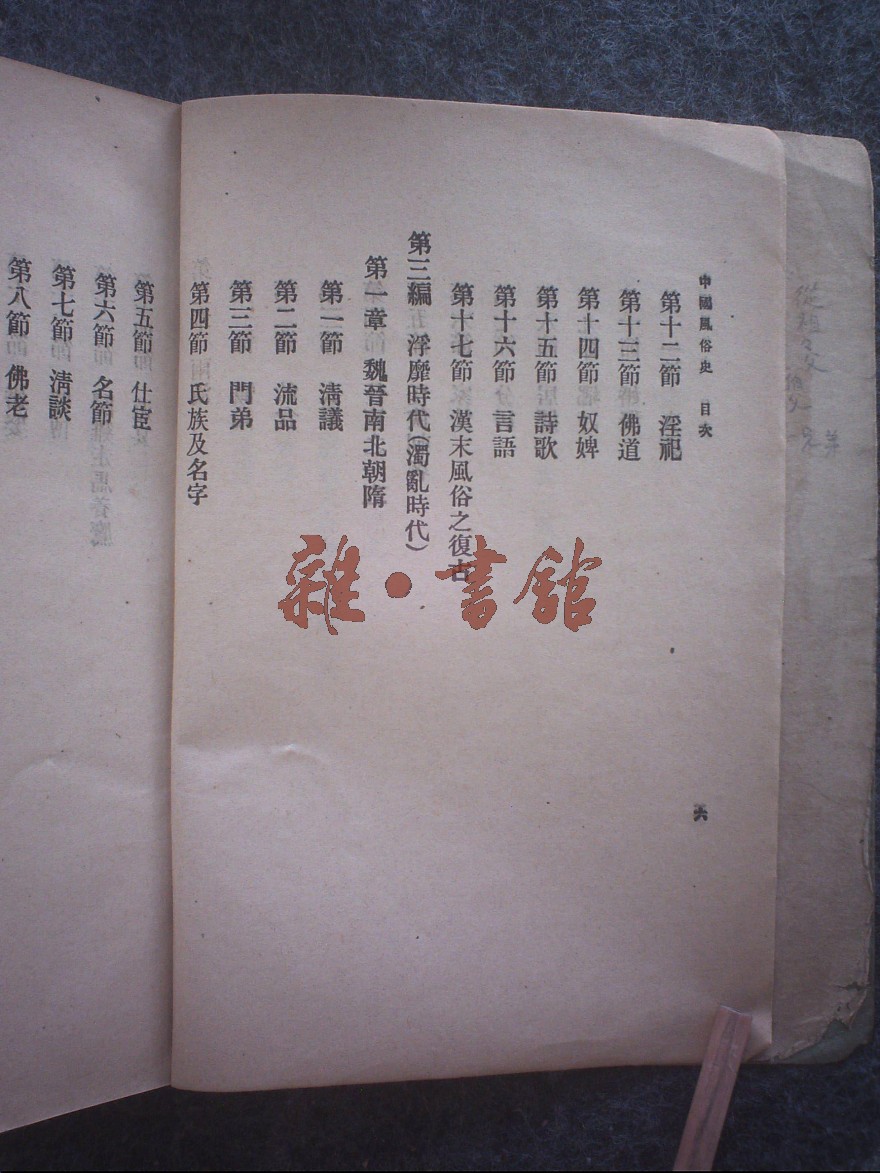 中國風俗史 目次
第十二節 淫祀
第十三節 佛道
第十四節 奴婢
第十五節 詩歌
第十六節 言語
第十七節 漢末風俗之復古
第三編 浮靡時代(濁亂時代)
第一章 魏晉南北朝隋
第一節 淸議
第二節 流品
第三節 門弟
第四節 氏族及名字
六
第五節 仕宦
第六節 名節
第七節 淸談
第八節 佛老
雜·書館